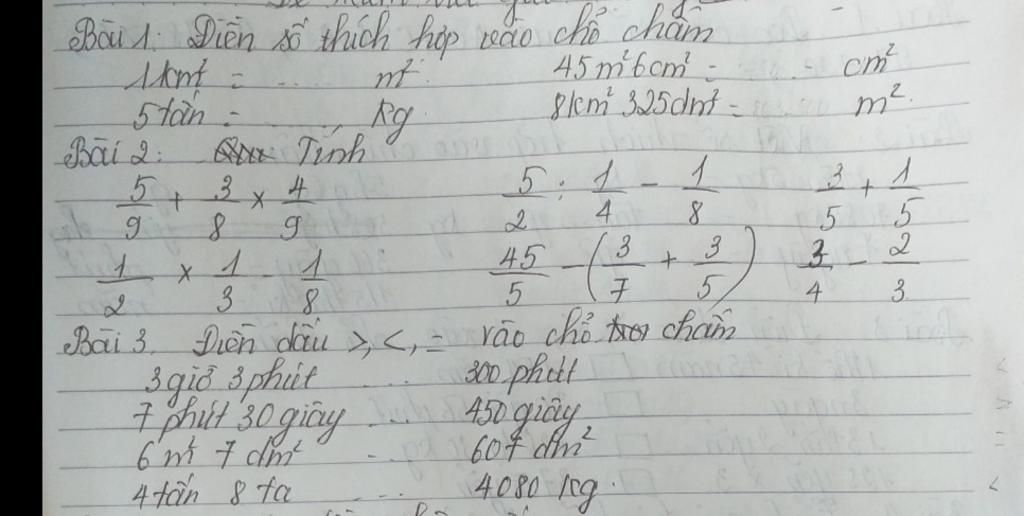 Bài 1: Điền số thích hợp vào chỗ chấm
1km² = ... m² 45m²6cm² = ... cm²
5tấn = ... kg 8km² 325dm² = m²
Bài 2: Tính
5/9 + 3/8 × 4/9 5/2 : 1/4 - 1/8 3/5 + 1/5
1/2 × 1/3 - 1/8 45/5 - (3/7 + 3/5) 3/4 - 2/3
Bài 3. Điền dấu >, <, = vào chỗ chấm
3 giờ 3 phút ... 300 phút
7 phút 30 giây ... 450 giây
6 m² 7 dm² ... 607 dm²
4 tấn 8 tạ ... 4080 kg.